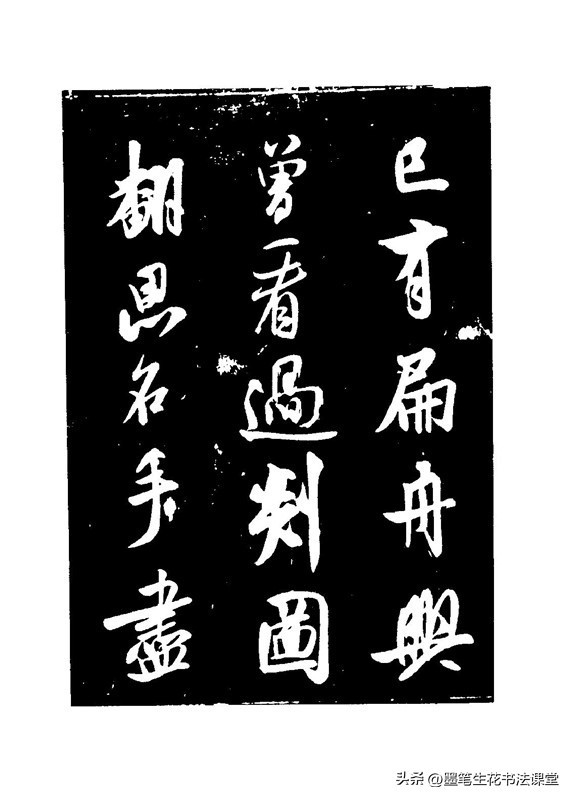 已有扁舟興
曾看過剡圖
翻思名手盡
头条 @墨笔生花书法课堂